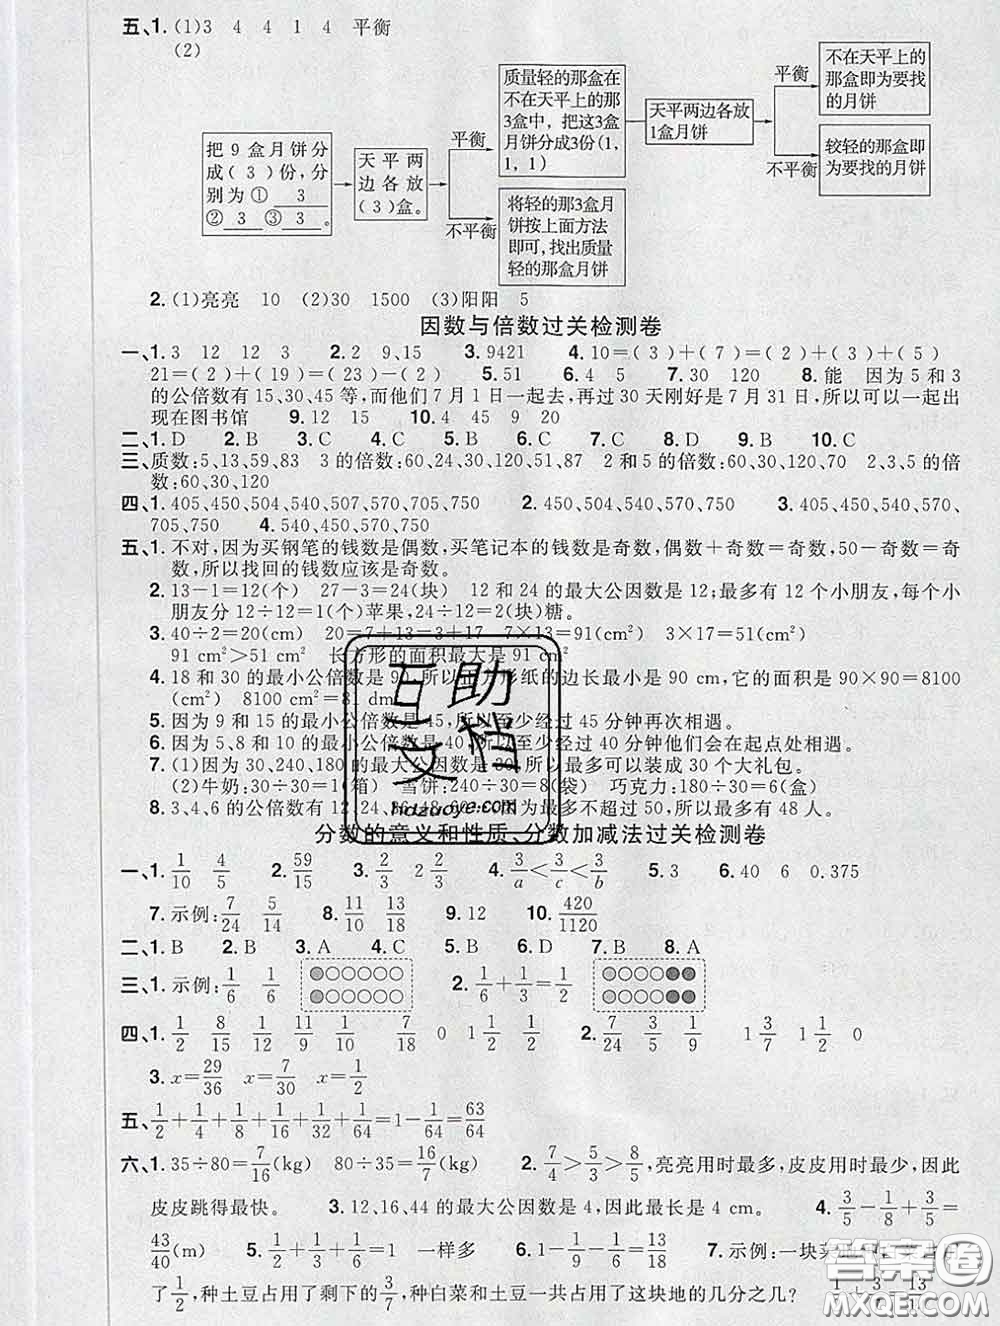 五、1. (1)3 4 4 1 4 平衡
(2)
把9盒月饼分成(3)份,分别为① 3 ② 3 ③ 3 。
天平两边各放(3)盒。
平衡
不平衡
质量轻的那盒在不在天平上的那3盒中,把这3盒月饼分成3份(1,1,1)
将轻的那3盒月饼按上面方法即可,找出质量轻的那盒月饼
天平两边各放1盒月饼
平衡
不平衡
不在天平上的那盒即为要找的月饼
较轻的那盒即为要找的月饼
2. (1)亮亮 10 (2)30 1500 (3)阳阳 5
因数与倍数过关检测卷
一、1. 3 12 12 3 2. 2 9、15 3. 9421 4. 10=(3)+(7)=(5)+(5)
21=(2)+(19)=(23)-(2) 5. 51 6. 4 5 7. 30 120 8. 能 因为5和3
的公倍数有15、30、45等,而他们7月1日一起去,再过30天刚好是7月31日,所以可以一起出
现在图书馆 9. 12 15 10. 4 45 9 20
二、1. D 2. B 3. C 4. C 5. B 6. C 7. C 8. D 9. B 10. C
三、质数:5、13、59、83 3的倍数:60、24、30、120、51、87 2和5的倍数:60、30、120、70 2、3、5的倍
数:60、30、120
四、1. 405、450、504、540、507、570、705、750 2. 450、504、540、570、750 3. 405、450、540、570、
705、750 4. 540、450、570、750
五、1. 不对,因为买钢笔的钱数是偶数,买笔记本的钱数是奇数,偶数+奇数=奇数,50-奇数=奇
数,所以找回的钱数应该是奇数。
2. 13-1=12(个) 27-3=24(块) 12和24的最大公因数是12;最多有12个小朋友,每个小
朋友分12÷12=1(个)苹果,24÷12=2(块)糖。
3. 40÷2=20(cm) 20=7+13=3+17 7×13=91(cm²) 3×17=51(cm²)
91 cm²>51 cm² 长方形的面积最大是91 cm²
4. 18和30的最小公倍数是90,所以正方形纸的边长最小是90 cm,它的面积是90×90=8100
(cm²) 8100 cm²=81 dm²
5. 因为9和15的最小公倍数是45,所以至少经过45分钟再次相遇。
6. 因为5、8和10的最小公倍数是40,所以至少经过40分钟他们会在起点处相遇。
7. (1)因为30、240、180的最大公因数是30,所以最多可以装成30个大礼包。
(2)牛奶:30÷30=1(箱) 雪饼:240÷30=8(袋) 巧克力:180÷30=6(盒)
8. 3、4、6的公倍数有12、24、36、48、60…因为最多不超过50,所以最多有48人。
互助文档
hdzuoye.com
分数的意义和性质、分数加减法过关检测卷
一、1. 1/10 4/5 2. 59/15 3. 2/3 2 2/3 4. 3/a<3/c<3/b 5. 3 6. 40 6 0.375
7. 示例:7/24 5/14 8. 11/10 13/18 9. 12 10. 420/1120
二、1. B 2. B 3. A 4. C 5. B 6. D 7. B 8. A
三、1. 示例:1/6 1/6 2. 1/6+1/3=1/2
四、1. 1/2 8/15 1/12 11/9 1/10 7/18 0 1 1/2 1/2 2. 7/24 3/5 1/9 1 3/7 1 1/2 0
3. x=29/36 x=7/30 x=1/2
五、1/2+1/4+1/8+1/16+1/32+1/64=1-1/64=63/64
六、1. 35÷80=7/16(kg) 80÷35=16/7(kg) 2. 7/4>5/3>8/5,亮亮用时最多,皮皮用时最少,因此
皮皮跳得最快。 3. 12、16、44的最大公因数是4,因此最长是4 cm。 4. 3/5-1/8+3/5=
43/40(m) 5. 1/2+1/3+1/6=1 一样多 6. 1-1/9-1/6=13/18 7. 示例:一块菜地
了1/2,种土豆占用了剩下的3/7,种白菜和土豆一共占用了这块地的几分之几?
答案圈